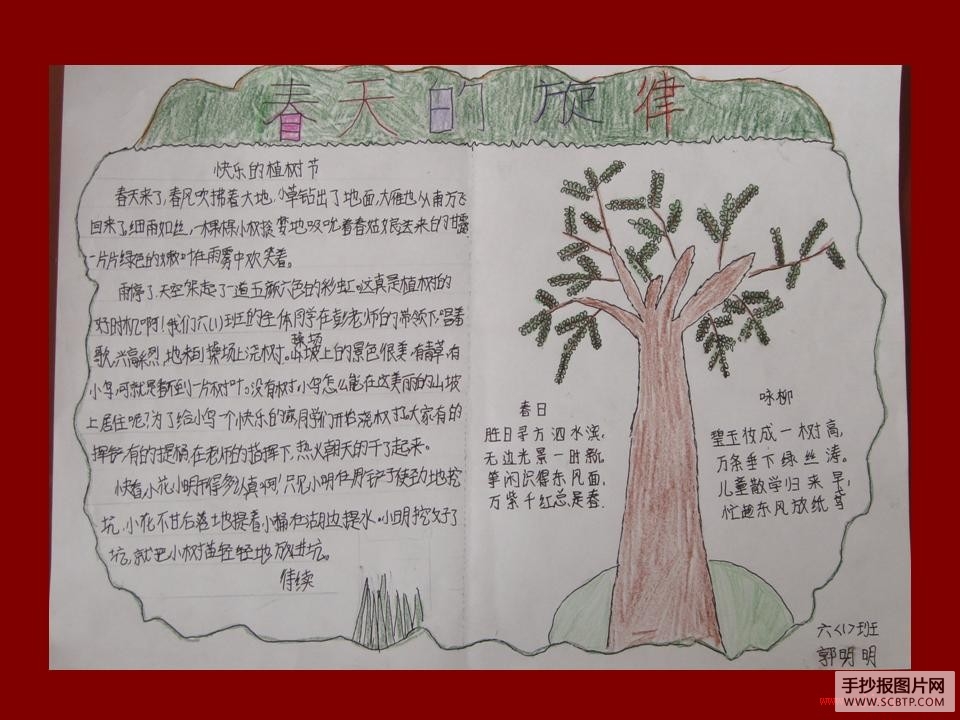 春天的旋律
快乐的植树节
春天来了,春风吹拂着大地,小草钻出了地面,大雁也从南方飞
回来了,细雨如丝,一棵棵小树 地吸吮着春姑娘送来的甘露
一片片绿色的嫩叶在雨雾中欢笑着。
雨停了,天空架起了一道五颜六色的彩虹。这真是植树的
好时机啊!我们六(1)班的全体同学在彭老师的带领下唱着
歌,兴高采烈地来到操场上浇树。山坡上的景色很美,有青草,有
小鸟,可就是看不到一片树叶。没有树,小鸟怎么能在这美丽的山坡
上居住呢?为了给小鸟一个快乐的家,同学们开始浇树了。大家有的
挥锹,有的提桶,在老师的指挥下,热火朝天的干了起来。
快看,小花小明干得多认真啊!只见小明在用铲子使劲地挖
坑,小花不甘后落地提着小桶在湖边提水。小明挖好了
坑,就把小树苗轻轻地放进坑。
待续
春日
胜日寻方泗水滨,
无边光景一时新。
等闲识得东风面,
万紫千红总是春.
咏柳
碧玉妆成一树高,
万条垂下绿丝涛。
儿童散学归来早,
忙趁东风放纸鸢
六(1)班
郭明明
手抄报图片网
WWW.SCBTP.COM